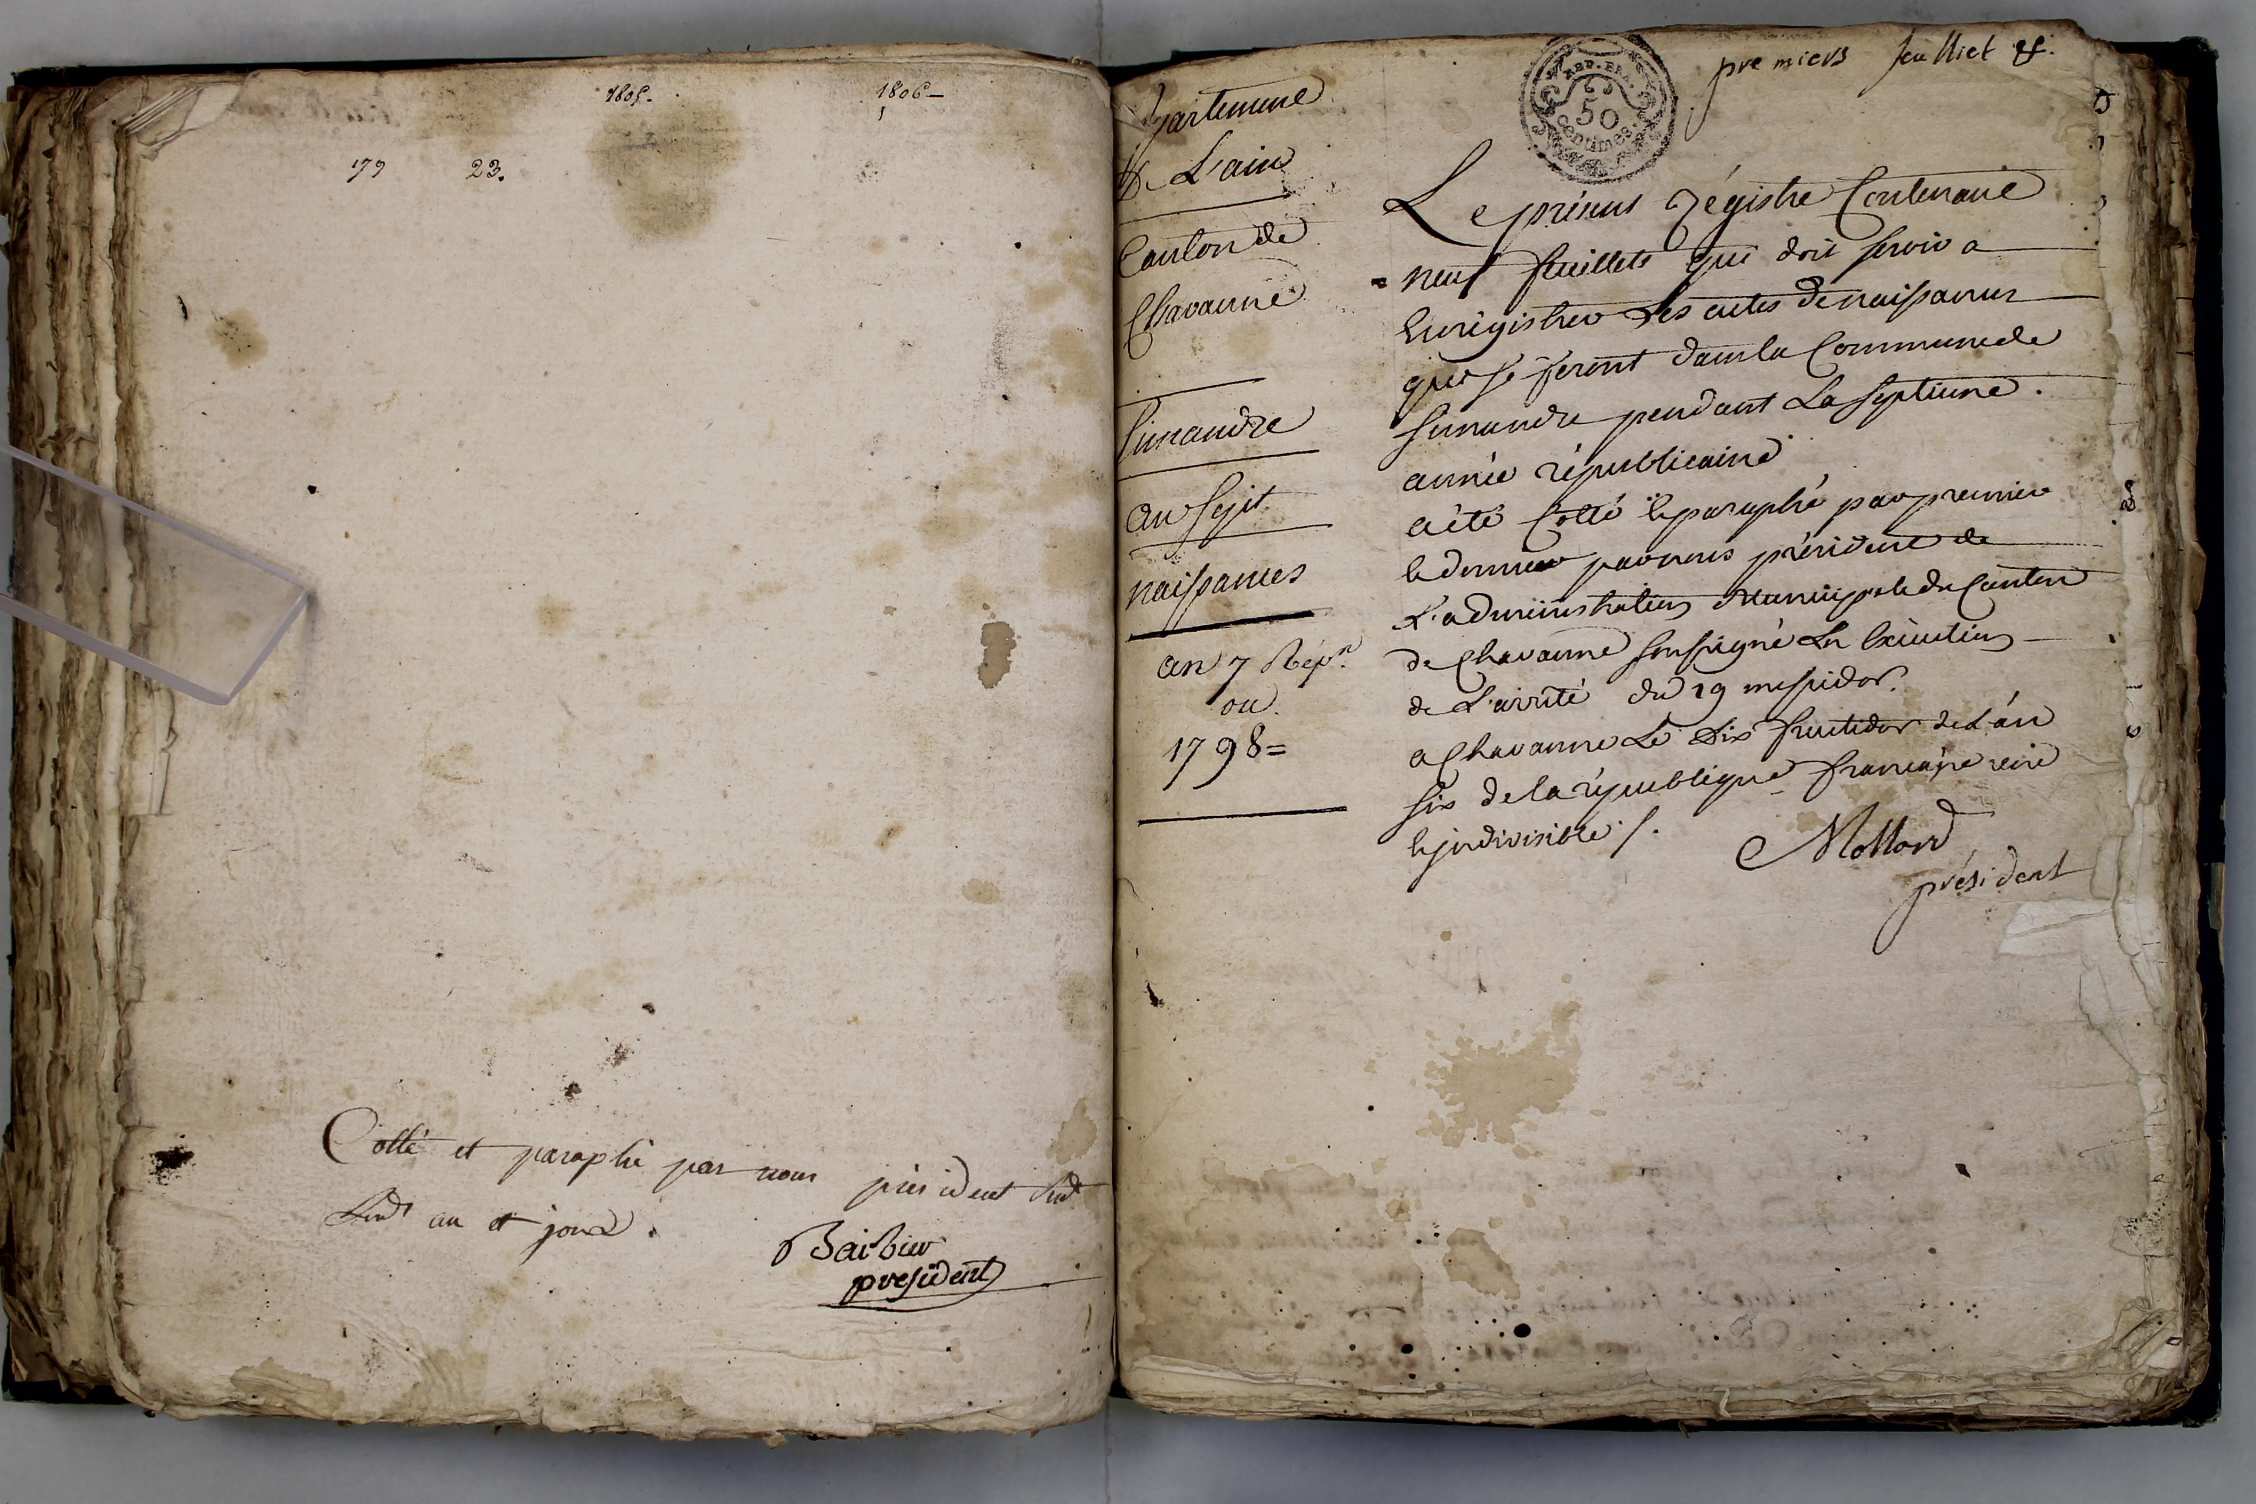 1805.
1806-
179 23.
Cotté et paraphé par nous president
an et jour.
Barbier
president
premiers feulliet
REP. FRA.
50
centimes
Departement
De L'ain
Canton de
Chavanne
Simandre
an Sept
naissances
an 7 Rép.n
ou
1798=
Le présent régistre Contenant
neuf feuillets qui doit servir a
Enrégistrer Les actes de naissances
qui se feront dans la Commune de
simandre pendant La septieme
année républicaine
a été Cotté et paraphé par premier
et dernier par nous président de
L'administration Municipale du Canton
de Chavanne soussigné En Exécution
de L'arrêté du 19 messidor.
a Chavanne Le Dix fructidor de L'an
six de la république française une
et indivisible ./.
Mottard
président